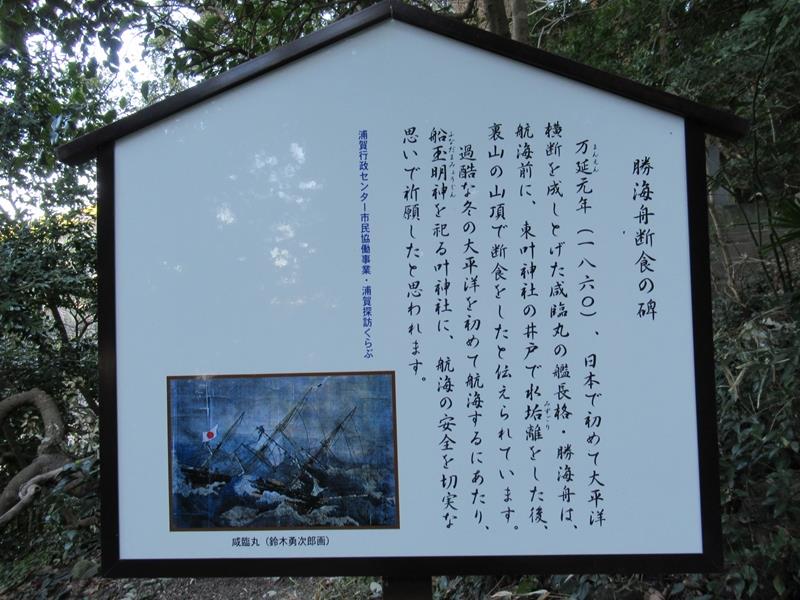 勝海舟断食の碑
万延元年(一八六〇)、日本で初めて大平洋
まんえん
横断を成しとげた咸臨丸の艦長格・勝海舟は、
航海前に、東叶神社の井戸で水垢離をした後、
みずごり
裏山の山頂で断食をしたと伝えられています。
過酷な冬の大平洋を初めて航海するにあたり、
船玉明神を祀る叶神社に、航海の安全を切実な
ふなだまみょうじん
思いで祈願したと思われます。
浦賀行政センター市民協働事業・浦賀探訪くらぶ
咸臨丸(鈴木勇次郎画)